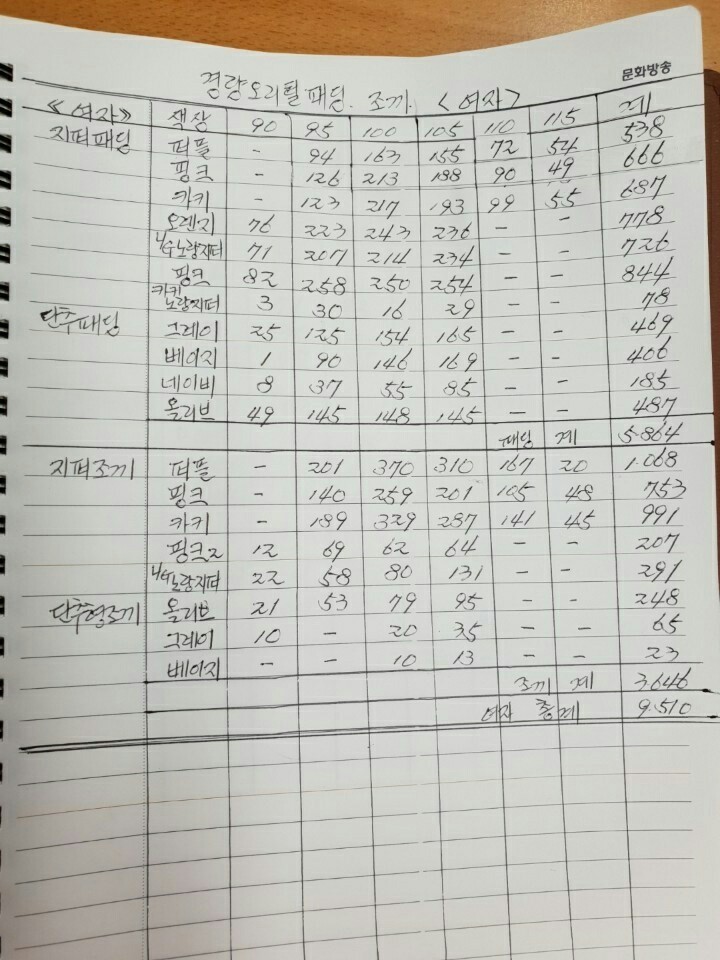 문화방송
경량오리털패딩. 조끼. <여자>
《여자》 색상 90 95 100 105 110 115 계
지퍼패딩 퍼플 - 94 163 155 72 54 538
핑크 - 126 213 188 90 49 666
카키 - 123 217 193 99 55 687
오렌지 76 223 243 236 - - 778
노랑지퍼 71 207 214 234 - - 726
핑크 82 258 250 254 - - 844
카키노랑지퍼 3 30 16 29 - - 78
단추패딩 그레이 25 125 154 165 - - 469
베이지 1 90 146 169 - - 406
네이비 8 37 55 85 - - 185
올리브 49 145 148 145 - - 487
패딩 계 5.864
지퍼조끼 퍼플 - 201 370 310 167 20 1.068
핑크 - 140 259 201 105 48 753
카키 - 189 329 287 141 45 991
핑크2 12 69 62 64 - - 207
노랑지퍼 22 58 80 131 - - 291
단추형조끼 올리브 21 53 79 95 - - 248
그레이 10 - 20 35 - - 65
베이지 - - 10 13 - - 23
조끼 계 3.646
여자 총계 9.510